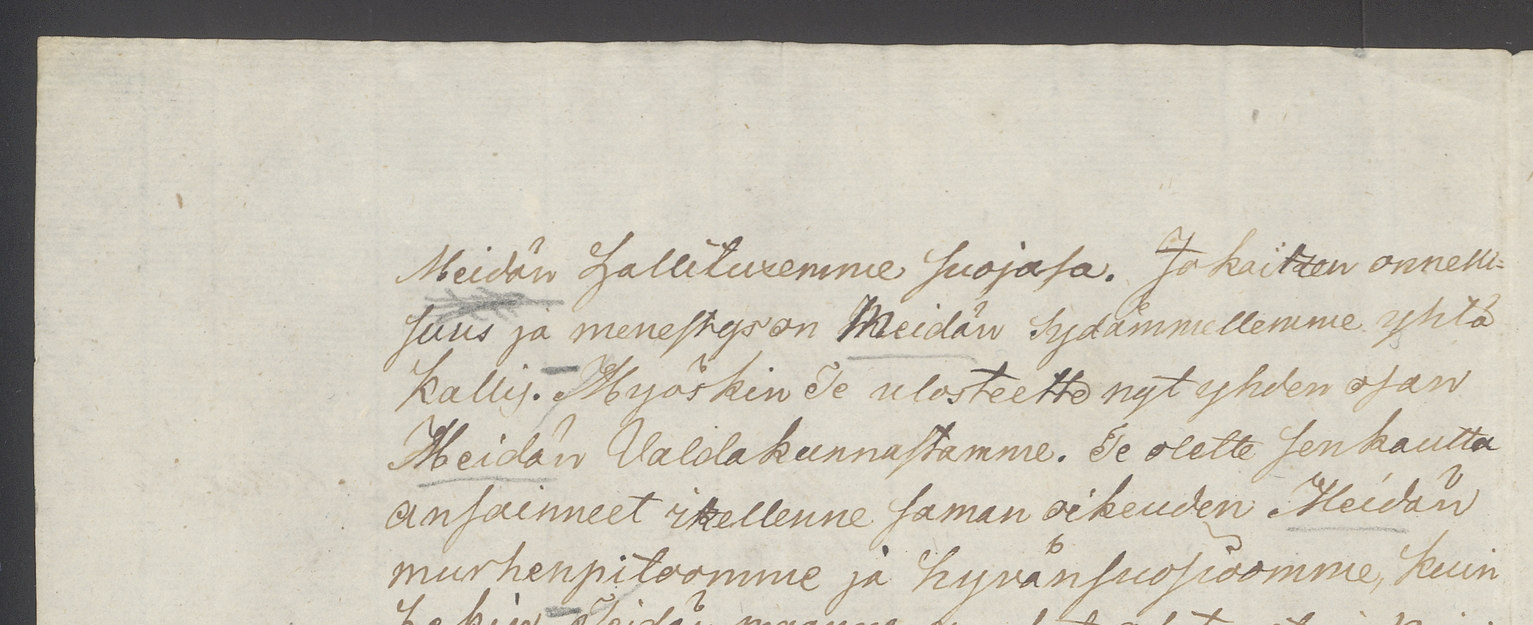 Meidän hallituxemme suojasa. Jokaitzen onnelli=
suus ja menestys on Meidän sydämmellemme yhtä
kallis. Myöskin Te ulosteette nyt yhden osan
Meidän Valdakunnastamme. Te olette sen kautta
ansainneet itzellenne saman oikeuden Meidän
murhenpitoomme ja hyvänsuosioomme, kuin